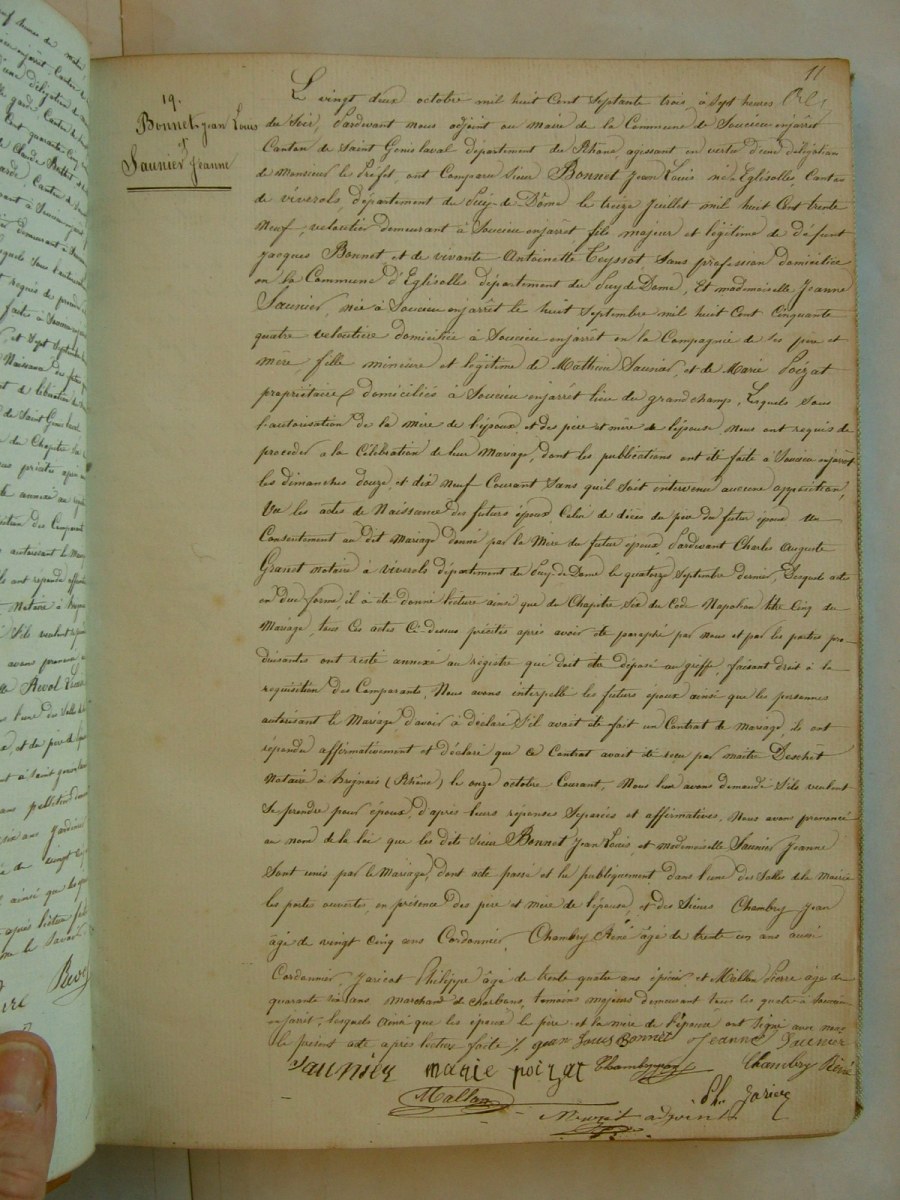 11
19.
Bonnet, Jean Louis
et
Saunier Jeanne
Le vingt deux octobre mil huit Cent Septante trois, à Sept heures
du Soir, Pardevant nous adjoint au maire de la Commune de Soucieu enjarret
Canton de Saint Genislaval département du Rhône agissant en vertu d'une délégation
de Monsieur le Préfet, ont Comparu Sieur Bonnet Jean Louis né à Eglisolles, Canton
de viverols, département du Puy-de-Dôme le treize Juillet mil huit Cent trente
neuf, veloutier demeurant à Soucieu enjarret fils majeur et légitime de défunt
Jacques Bonnet et de vivante Antoinette Teyssot Sans profession domiciliée
en la Commune d'Eglisolles département du Puy de Dome, Et mademoiselle Jeanne
Saunier, née à Soucieu enjarrêt le huit Septembre mil huit Cent Cinquante
quatre veloutière domiciliée à Soucieu enjarrêt en la Compagnie de ses père et
mère, fille mineure et légitime de Mathieu Saunier, et de Marie Poizat
propriétaires domiciliés à Soucieu enjarrêt lieu du grandchamp, Lesquels Sous
l'autorisation de la mère de l'époux et des père et mère de l'épouse, nous ont requis de
procéder à la Célébration de leur Mariage, dont les publications ont été faite à Soucieu enjarrêt
les dimanches douze et dix neuf Courant Sans qu'il Soit intervenu aucune opposition,
Vu les actes de Naissance des futurs époux, Celui de décès du père du futur époux Un
Consentement au dit Mariage donné par la Mère du futur époux, Pardevant Charles Auguste
Granet notaire à viverols département du Puy de Dome le quatorze Septembre dernier, Desquels actes
en due forme il a été donné lecture ainsi que du Chapitre Six du Code Napoléon titre Cinq du
Mariage, tous Ces actes Ci-dessus précités après avoir été paraphé par nous et par les parties pro
duisantes ont resté annexé au régistre qui doit être déposé au greffe, faisant droit à la
requisition des Comparants, Nous avons interpellé les futurs époux ainsi que les personnes
autorisant le Mariage d'avoir à déclaré S'il avait été fait un Contrat de Mariage, ils ont
répondu affirmativement et déclaré que ce Contrat avait été reçu par maître
Notaire à (Rhône) le onze octobre Courant, Nous leur avons demandé S'ils veulent
Se prendre pour époux, d'après leurs réponses Séparées et affirmatives, Nous avons prononcé
au nom de la loi que les dits Sieur Bonnet Jean Louis, et mademoiselle Saunier Jeanne
Sont unis par le Mariage, dont acte passé et lu publiquement dans l'une des Salles de la mairie
les portes ouvertes, en présence des père et mère de l'épouse, et des Sieurs Chambry Jean
âgé de vingt Cinq ans Cordonnier, Chambry Réné âgé de trente un ans aussi
Cordonnier, Jaricot Philippe âgé de trente quatre ans épicier et Mallan Pierre âgé de
quarante ans marchand de Charbons, témoins majeurs demeurant tous les quatre à Soucieu
enjarrêt, lesquels ainsi que les époux le père et la mère de l'épouse ont Signé avec nous
le présent acte après lecture faite / jean Louis Bonnet Jeanne Saunier
Saunier marie poizat Chambry Chambry Réné
Mallan Ph. Jaricot
adjoint